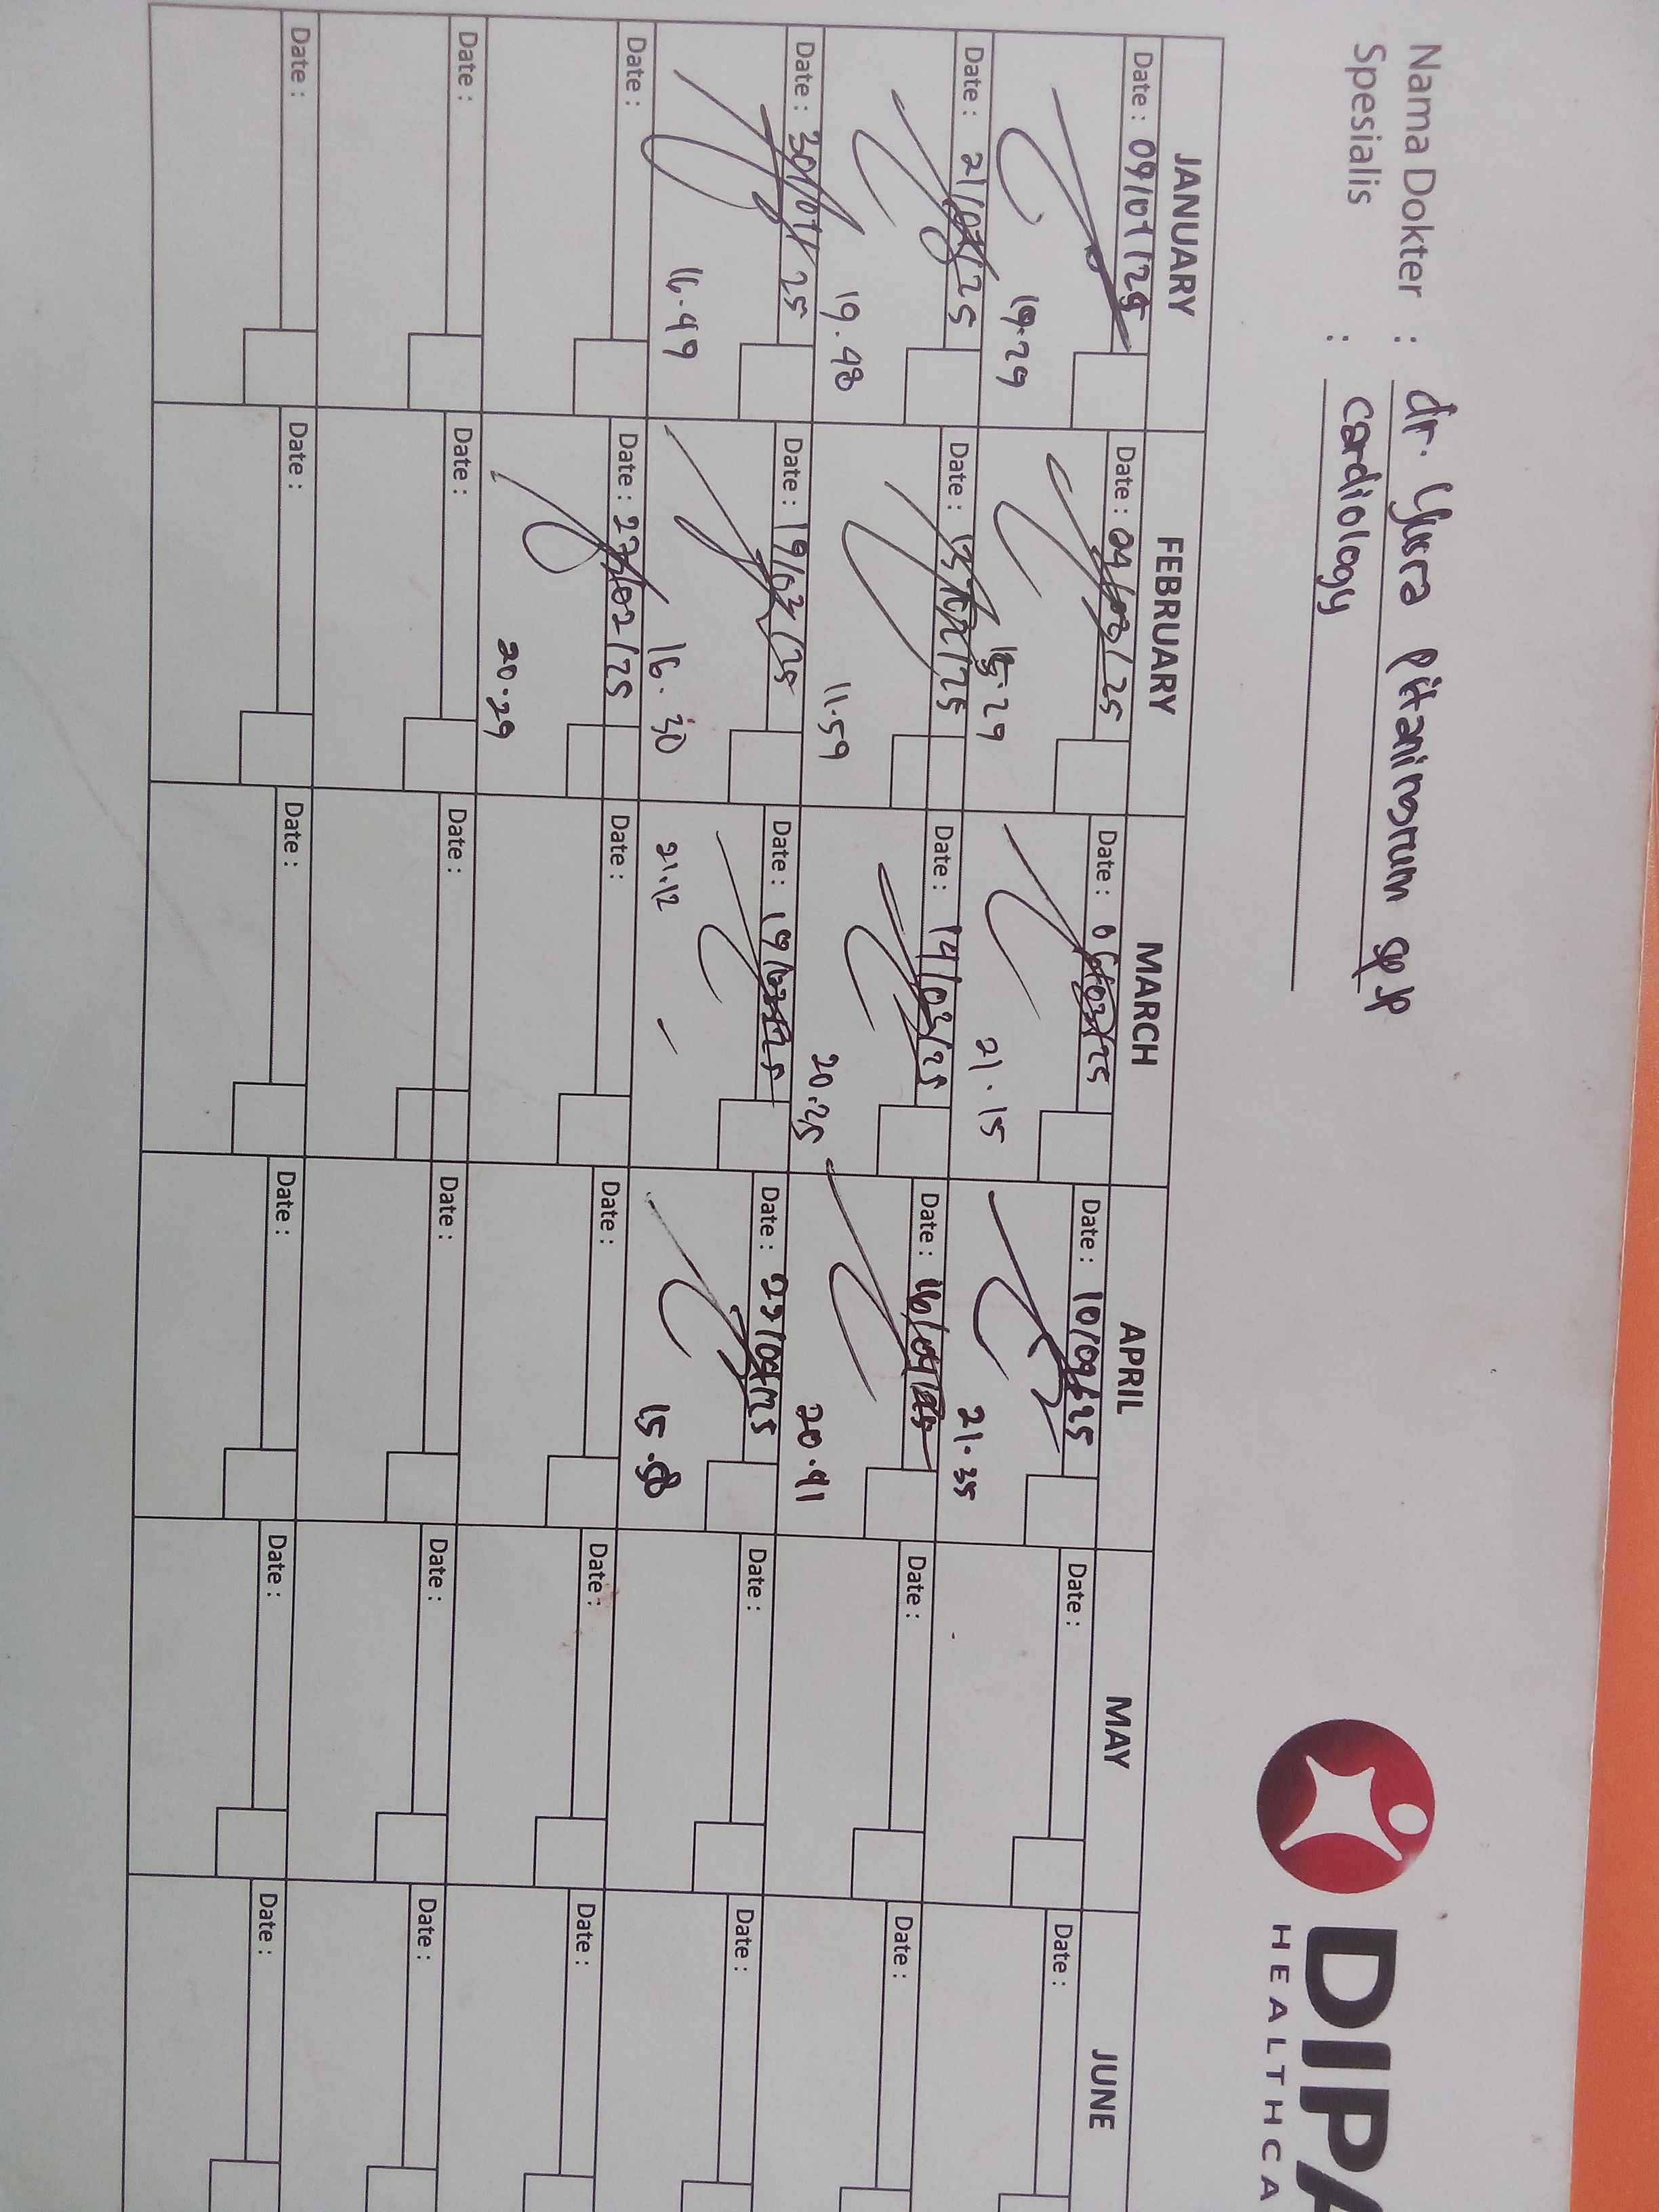 Nama Dokter : dr. Yusra Pitaningrum SpJP
Spesialis : Cardiology
DIPA
HEALTHCA
JANUARY FEBRUARY MARCH APRIL MAY JUNE
Date : 09/01/25 Date : 04/02/25 Date : 06/03/25 Date : 10/04/25 Date : Date :
19.29 .29 21.15 21.35
Date : 21/01/25 Date : 13/02/25 Date : 14/03/25 Date : 16/04/25 Date : Date :
19.48 11.59 20.25 20.41
Date : 30/01/25 Date : 19/02/25 Date : 19/03/25 Date : 23/04/25 Date : Date :
16.49 16.30 21.12 15.58
Date : Date : 27/02/25 Date : Date : Date : Date :
20.29
Date : Date : Date : Date : Date : Date :
Date : Date : Date : Date : Date : Date :